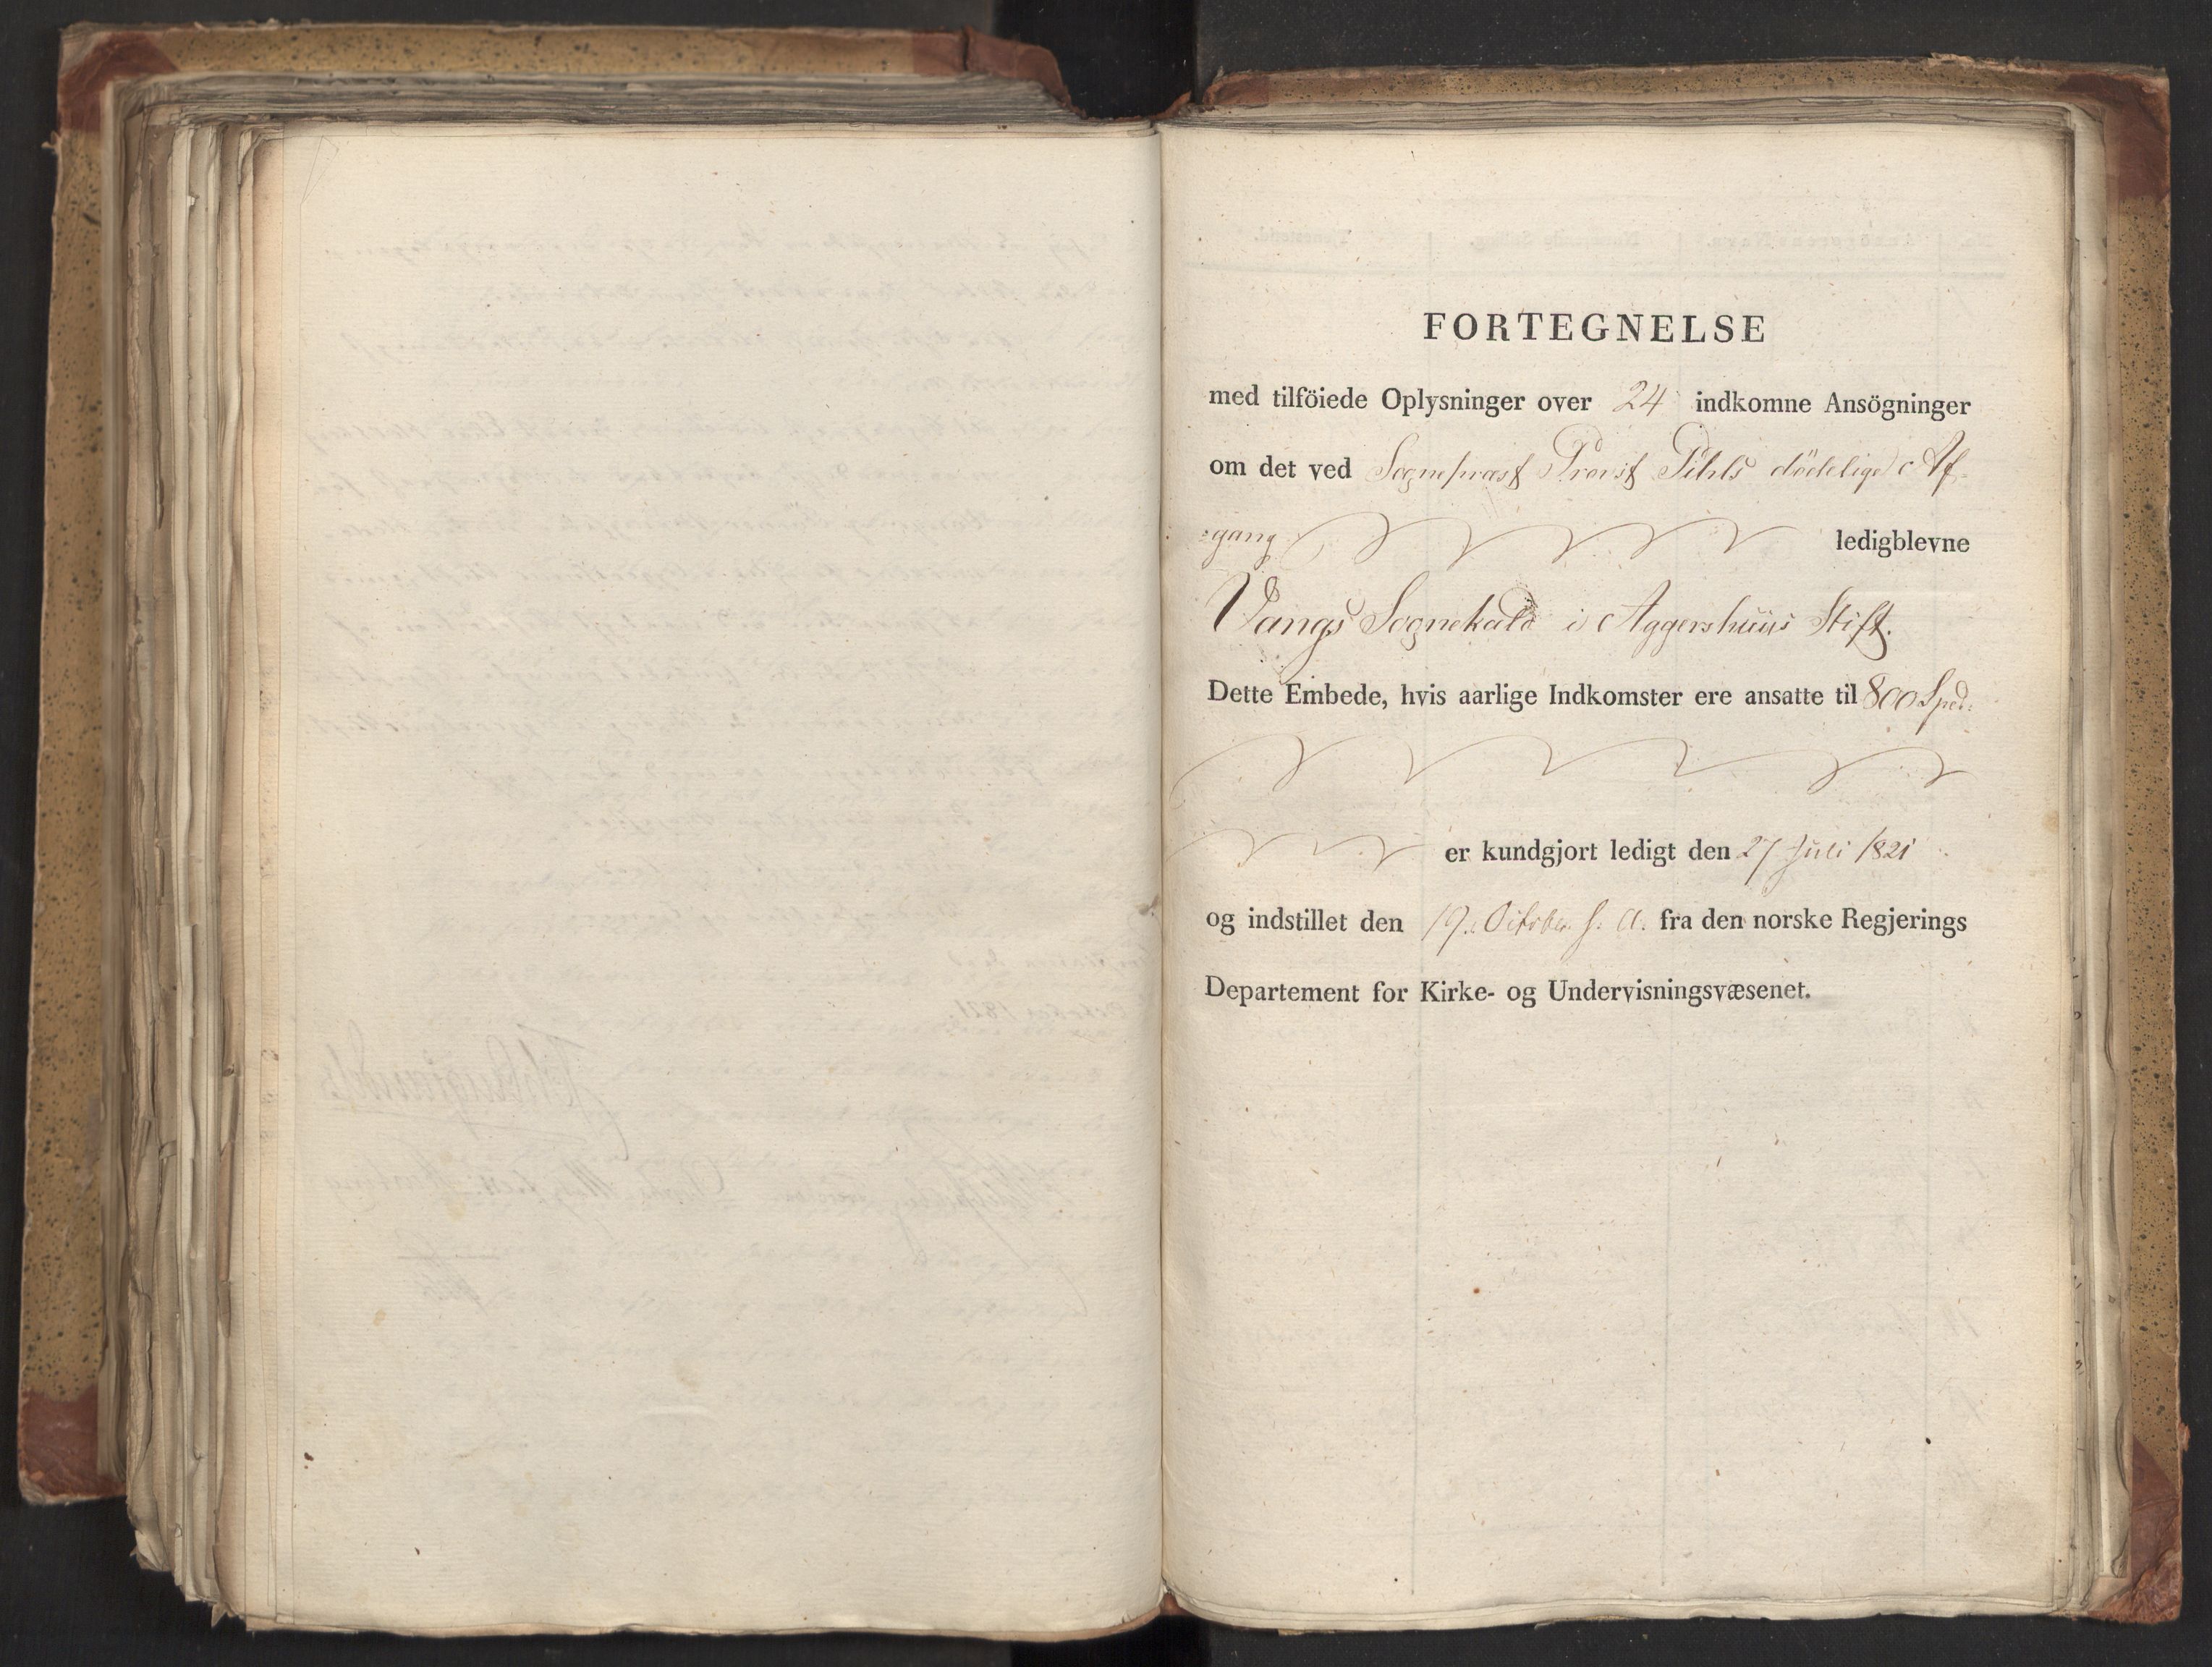 FORTEGNELSE
med tilföiede Oplysninger over 24 indkomne Ansögninger
om det ved Sognepræst Provst Pihls dödelige Af-
gang ledigblevne
Vangs Sognekald i Aggershuus Stift.
Dette Embede, hvis aarlige Indkomster ere ansatte til 800 Spd:
er kundgjort ledigt den 27 Juli 1821
og indstillet den 19. October s. A. fra den norske Regjerings
Departement for Kirke- og Undervisningsvæsenet.